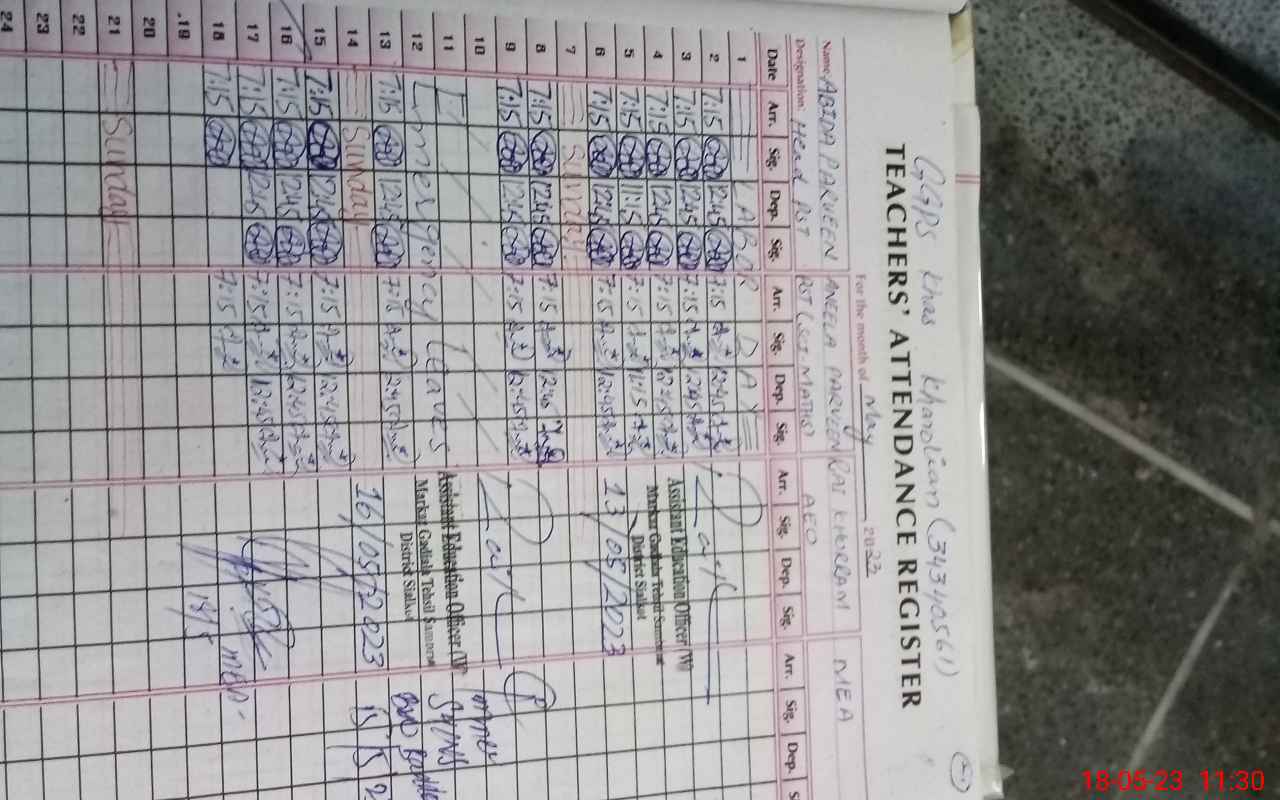 GGPS Khas Kharolian (34340561)
TEACHERS' ATTENDANCE REGISTER
For the month of May 2023
Name: ABIDA PARVEEN ANEELA PARVEEN RAI KHURRAM MEA
Designation: Head PST PST (Sci-Maths) AEO
Date Arr. Sig. Dep. Sig. Arr. Sig. Dep. Sig. Arr. Sig. Dep. Sig. Arr. Sig. Dep.
1 LABOR DAY
2 7:15 12:45 7:15 12:45
3 7:15 12:45 7:15 12:45
Assistant Education Officer (W)
4 7:15 12:45 7:15 12:45
Markaz Gadiala Tehsil Sambrial
5 7:15 11:15 7:15 11:15
District Sialkot
6 7:15 12:45 7:15 12:45 13/05/2023
7 Sunday
8 7:15 12:45 7:15 12:45
9 7:15 12:45 7:15 12:45
10
11
Assistant Education Officer (W)
12 Emergency Leaves
Markaz Gadiala Tehsil Sambrial
District Sialkot
13 7:15 12:45 7:15 12:45
14 Sunday 16/05/2023
15 7:15 12:45 7:15 12:45
16 7:15 12:45 7:15 12:45
17 7:15 12:45 7:15 12:45
18 7:15 7:15
19
20
21 Sunday
22
23
24
18-05-23 11:30